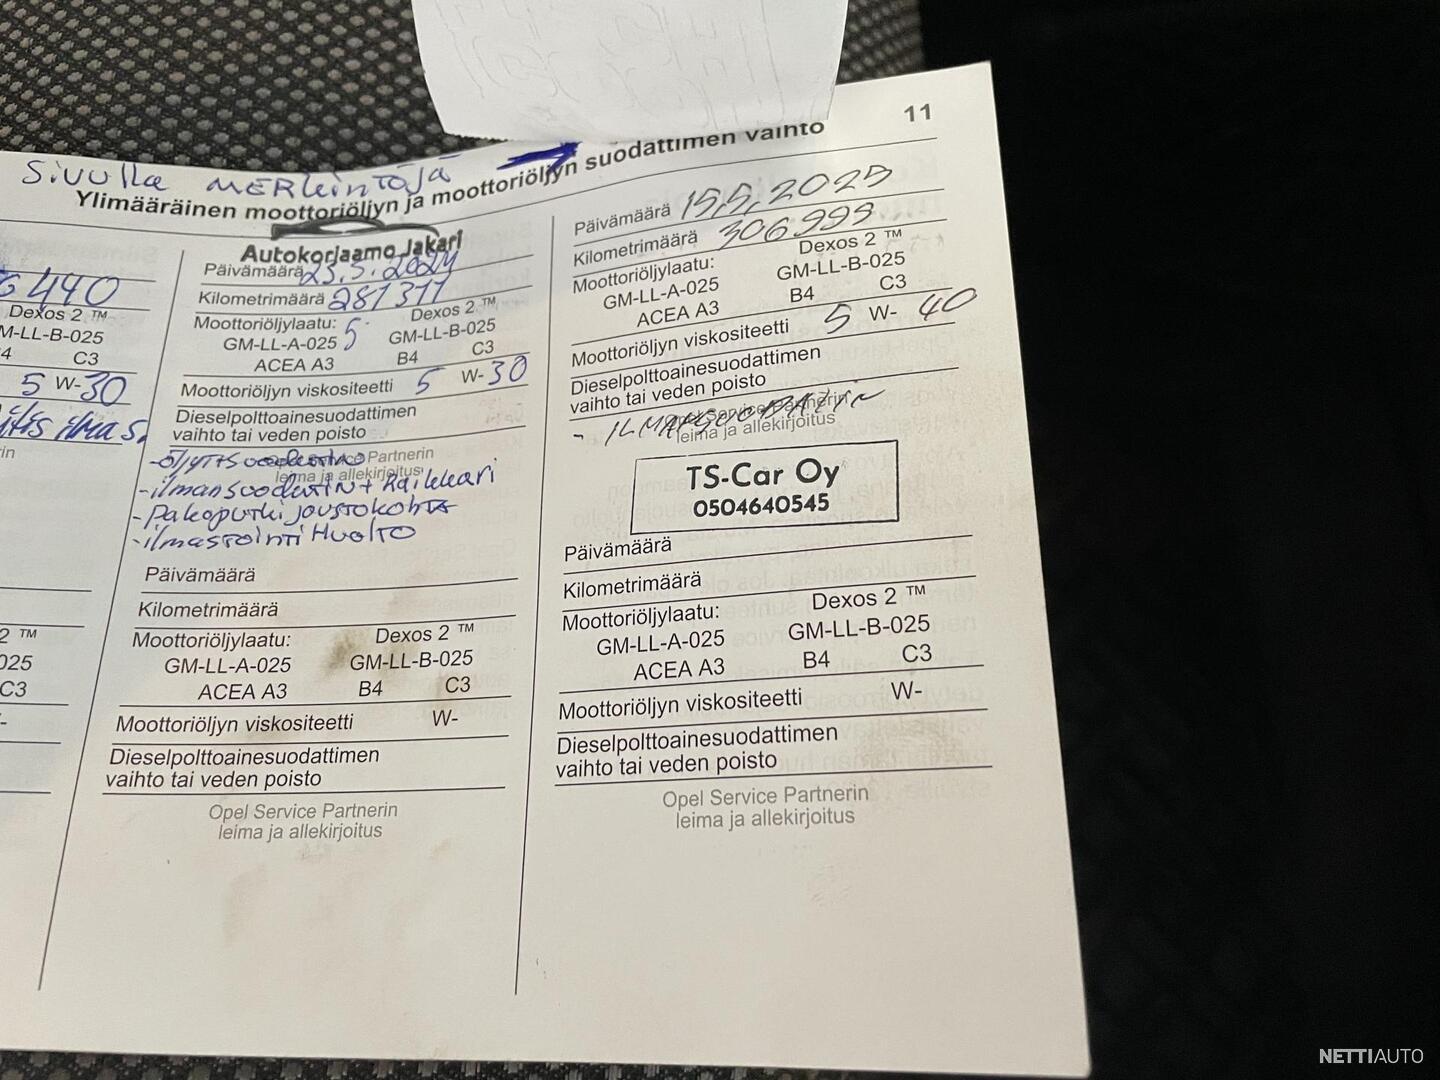 11
Sivulla merkintöjä
Ylimääräinen moottoriöljyn ja moottoriöljyn suodattimen vaihto
440
Dexos 2 ™
M-LL-B-025
C3
5 W-30
ilma s.
2 ™
025
C3
Autokorjaamo Jakari
Päivämäärä 23.5.2024
Kilometrimäärä 281311
Moottoriöljylaatu: Dexos 2 ™
GM-LL-A-025 5 GM-LL-B-025
ACEA A3 B4 C3
Moottoriöljyn viskositeetti 5 W-30
Dieselpolttoainesuodattimen
vaihto tai veden poisto
Opel Service Partnerin
leima ja allekirjoitus
-öljyt+suodatin
-ilmansuodatin + Raikkari
-Pakoputki joustokohta
-ilmastointi Huolto
Päivämäärä
Kilometrimäärä
Moottoriöljylaatu: Dexos 2 ™
GM-LL-A-025 GM-LL-B-025
ACEA A3 B4 C3
Moottoriöljyn viskositeetti W-
Dieselpolttoainesuodattimen
vaihto tai veden poisto
Opel Service Partnerin
leima ja allekirjoitus
Päivämäärä 15.5.2025
Kilometrimäärä 306999
Moottoriöljylaatu: Dexos 2 ™
GM-LL-A-025 GM-LL-B-025
ACEA A3 B4 C3
Moottoriöljyn viskositeetti 5 W- 40
Dieselpolttoainesuodattimen
vaihto tai veden poisto
- ILMANSUODATIN
Opel Service Partnerin
leima ja allekirjoitus
TS-Car Oy
0504640545
Päivämäärä
Kilometrimäärä
Moottoriöljylaatu: Dexos 2 ™
GM-LL-A-025 GM-LL-B-025
ACEA A3 B4 C3
Moottoriöljyn viskositeetti W-
Dieselpolttoainesuodattimen
vaihto tai veden poisto
Opel Service Partnerin
leima ja allekirjoitus
NETTIAUTO